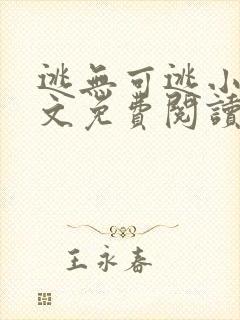 逃無可逃小
文免費閱讀
王永春